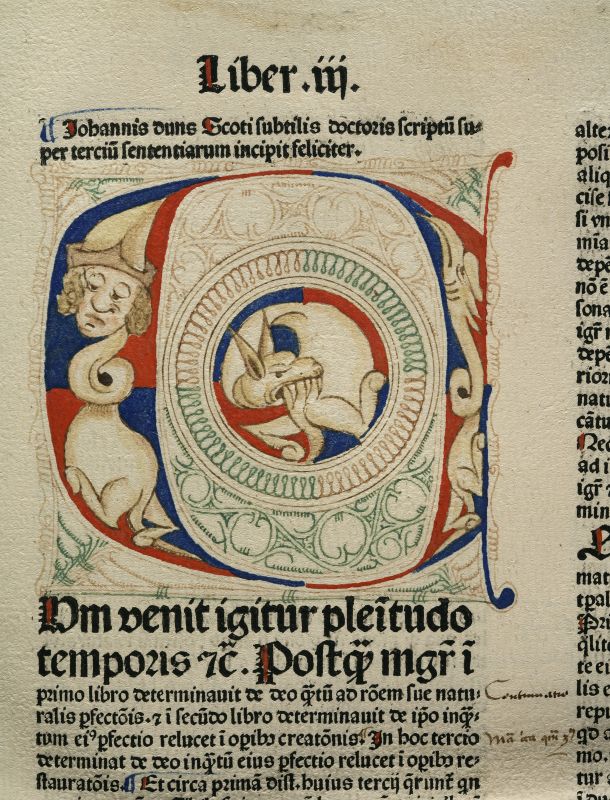 Liber .iij.
Johannis duns Scoti subtilis doctoris scriptū su⸗
per terciū sententiarum incipit feliciter.
Vm venit igitur pleītudo
temporis ⁊c̄. Postq̄ʒ mgr̄ ī
primo libro determinauit de deo q̄ʒtū ad rōem sue natu⸗
ralis ꝑfectōis. ⁊ ī secūdo libro determinauit de ip̄o inq̄ʒ⸗
tum eiꝰ ꝑfectio relucet ī oꝑibꝰ creatōnis. In hoc tercio
determinat de deo inq̄ʒtū eius ꝑfectio relucet ī oꝑibꝰ re⸗
stauratōis. Et circa primā dist. huius tercij q̄runt̄ qn̄
alte
posi
aliq
cise
si vn
mīa
depē
nō ē
sona
igr̄
depē
rior
natu
cātu
Nec
ad i
igr̄
min
mat
tꝑal
Pri
q̄lite
te ei
lis
repu
qd
mo.
tur